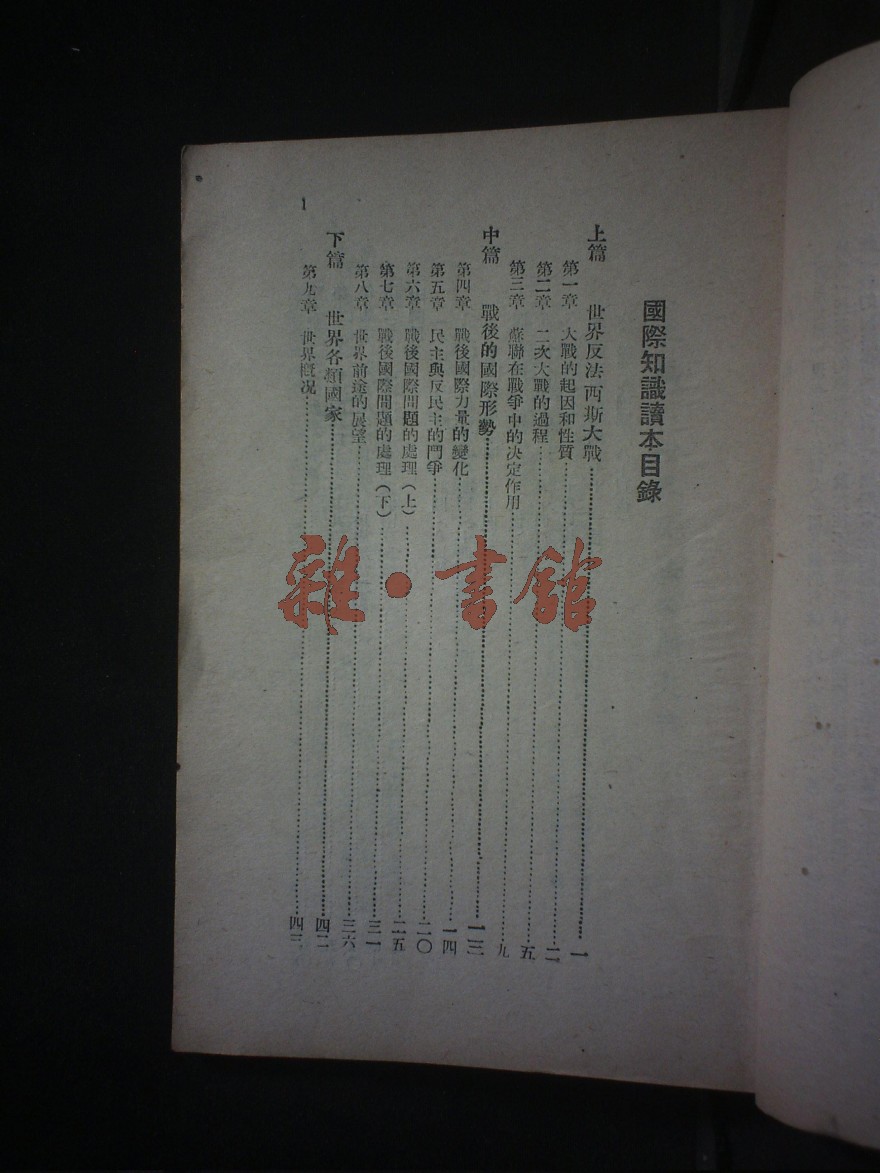 國際知識讀本目錄
上篇 世界反法西斯大戰……一
第一章 大戰的起因和性質……二
第二章 二次大戰的過程……五
第三章 蘇聯在戰爭中的決定作用……九
中篇 戰後的國際形勢……一三
第四章 戰後國際力量的變化……一四
第五章 民主與反民主的鬥爭……二〇
第六章 戰後國際問題的處理(上)……二五
第七章 戰後國際問題的處理(下)……三一
第八章 世界前途的展望……三六
下篇 世界各類國家……四二
第九章 世界概況……四三
1
雜·書館